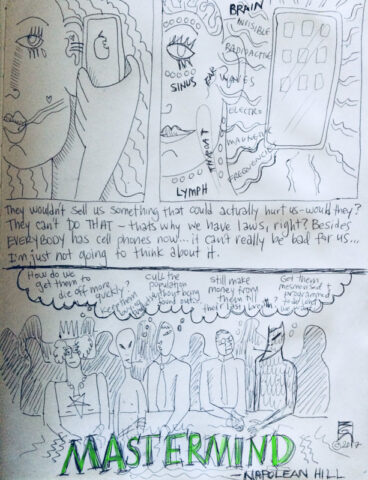 BRAIN
INVISIBLE
RADIOACTIVE
WAVES
ELECTRO
MAGNETIC
FREQUENCIES
SINUS
EAR
THROAT
LYMPH
They wouldn't sell us something that could actually hurt us - would they?
They can't DO THAT - thats why we have laws, right? Besides
EVERYBODY has cell phones now... it can't really be bad for us...
I'm just not going to think about it.
How do we
get them to
die off more
quickly?
Keep them
cull the
population
without being
found out?
Still make
money from
them till
their last breath?
Get them
mesmerized +
programmed
to do
MASTERMIND
- NAPOLEAN HILL
© 2017